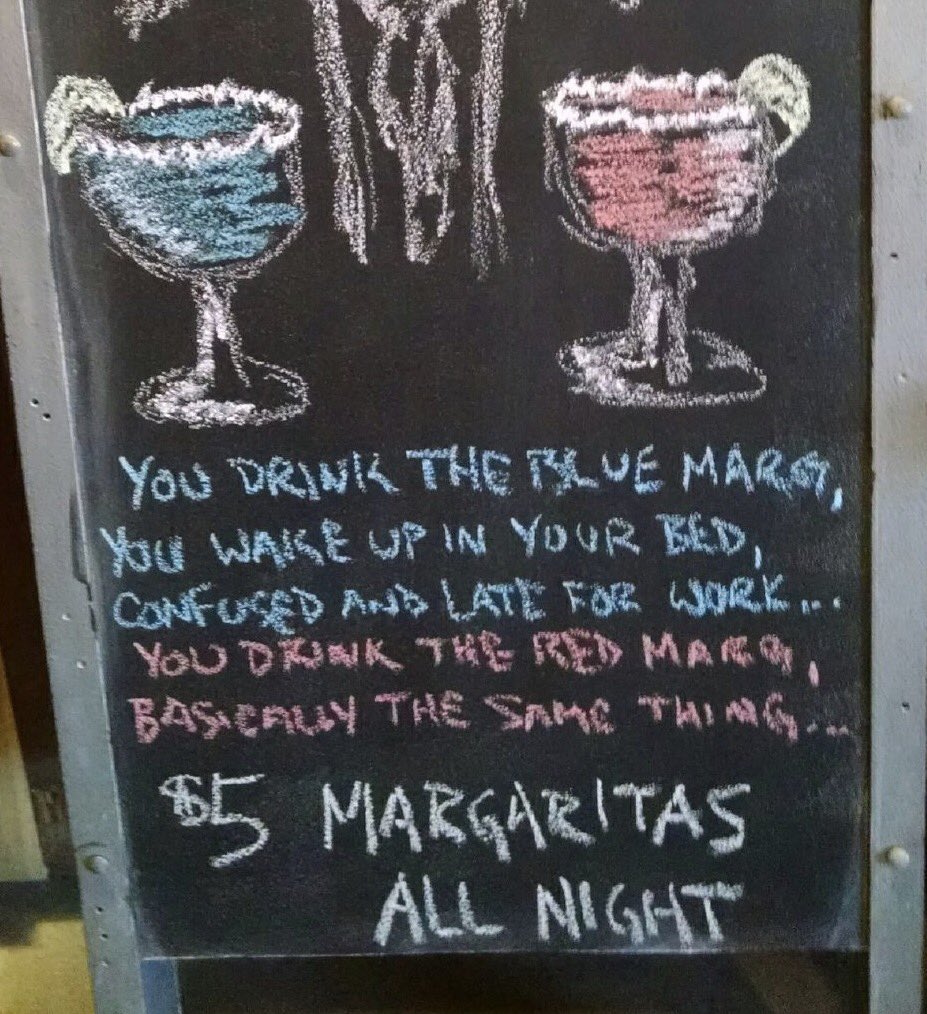 YOU DRINK THE BLUE MARG,
YOU WAKE UP IN YOUR BED,
CONFUSED AND LATE FOR WORK...
YOU DRINK THE RED MARG,
BASICALLY THE SAME THING...
$5 MARGARITAS
ALL NIGHT